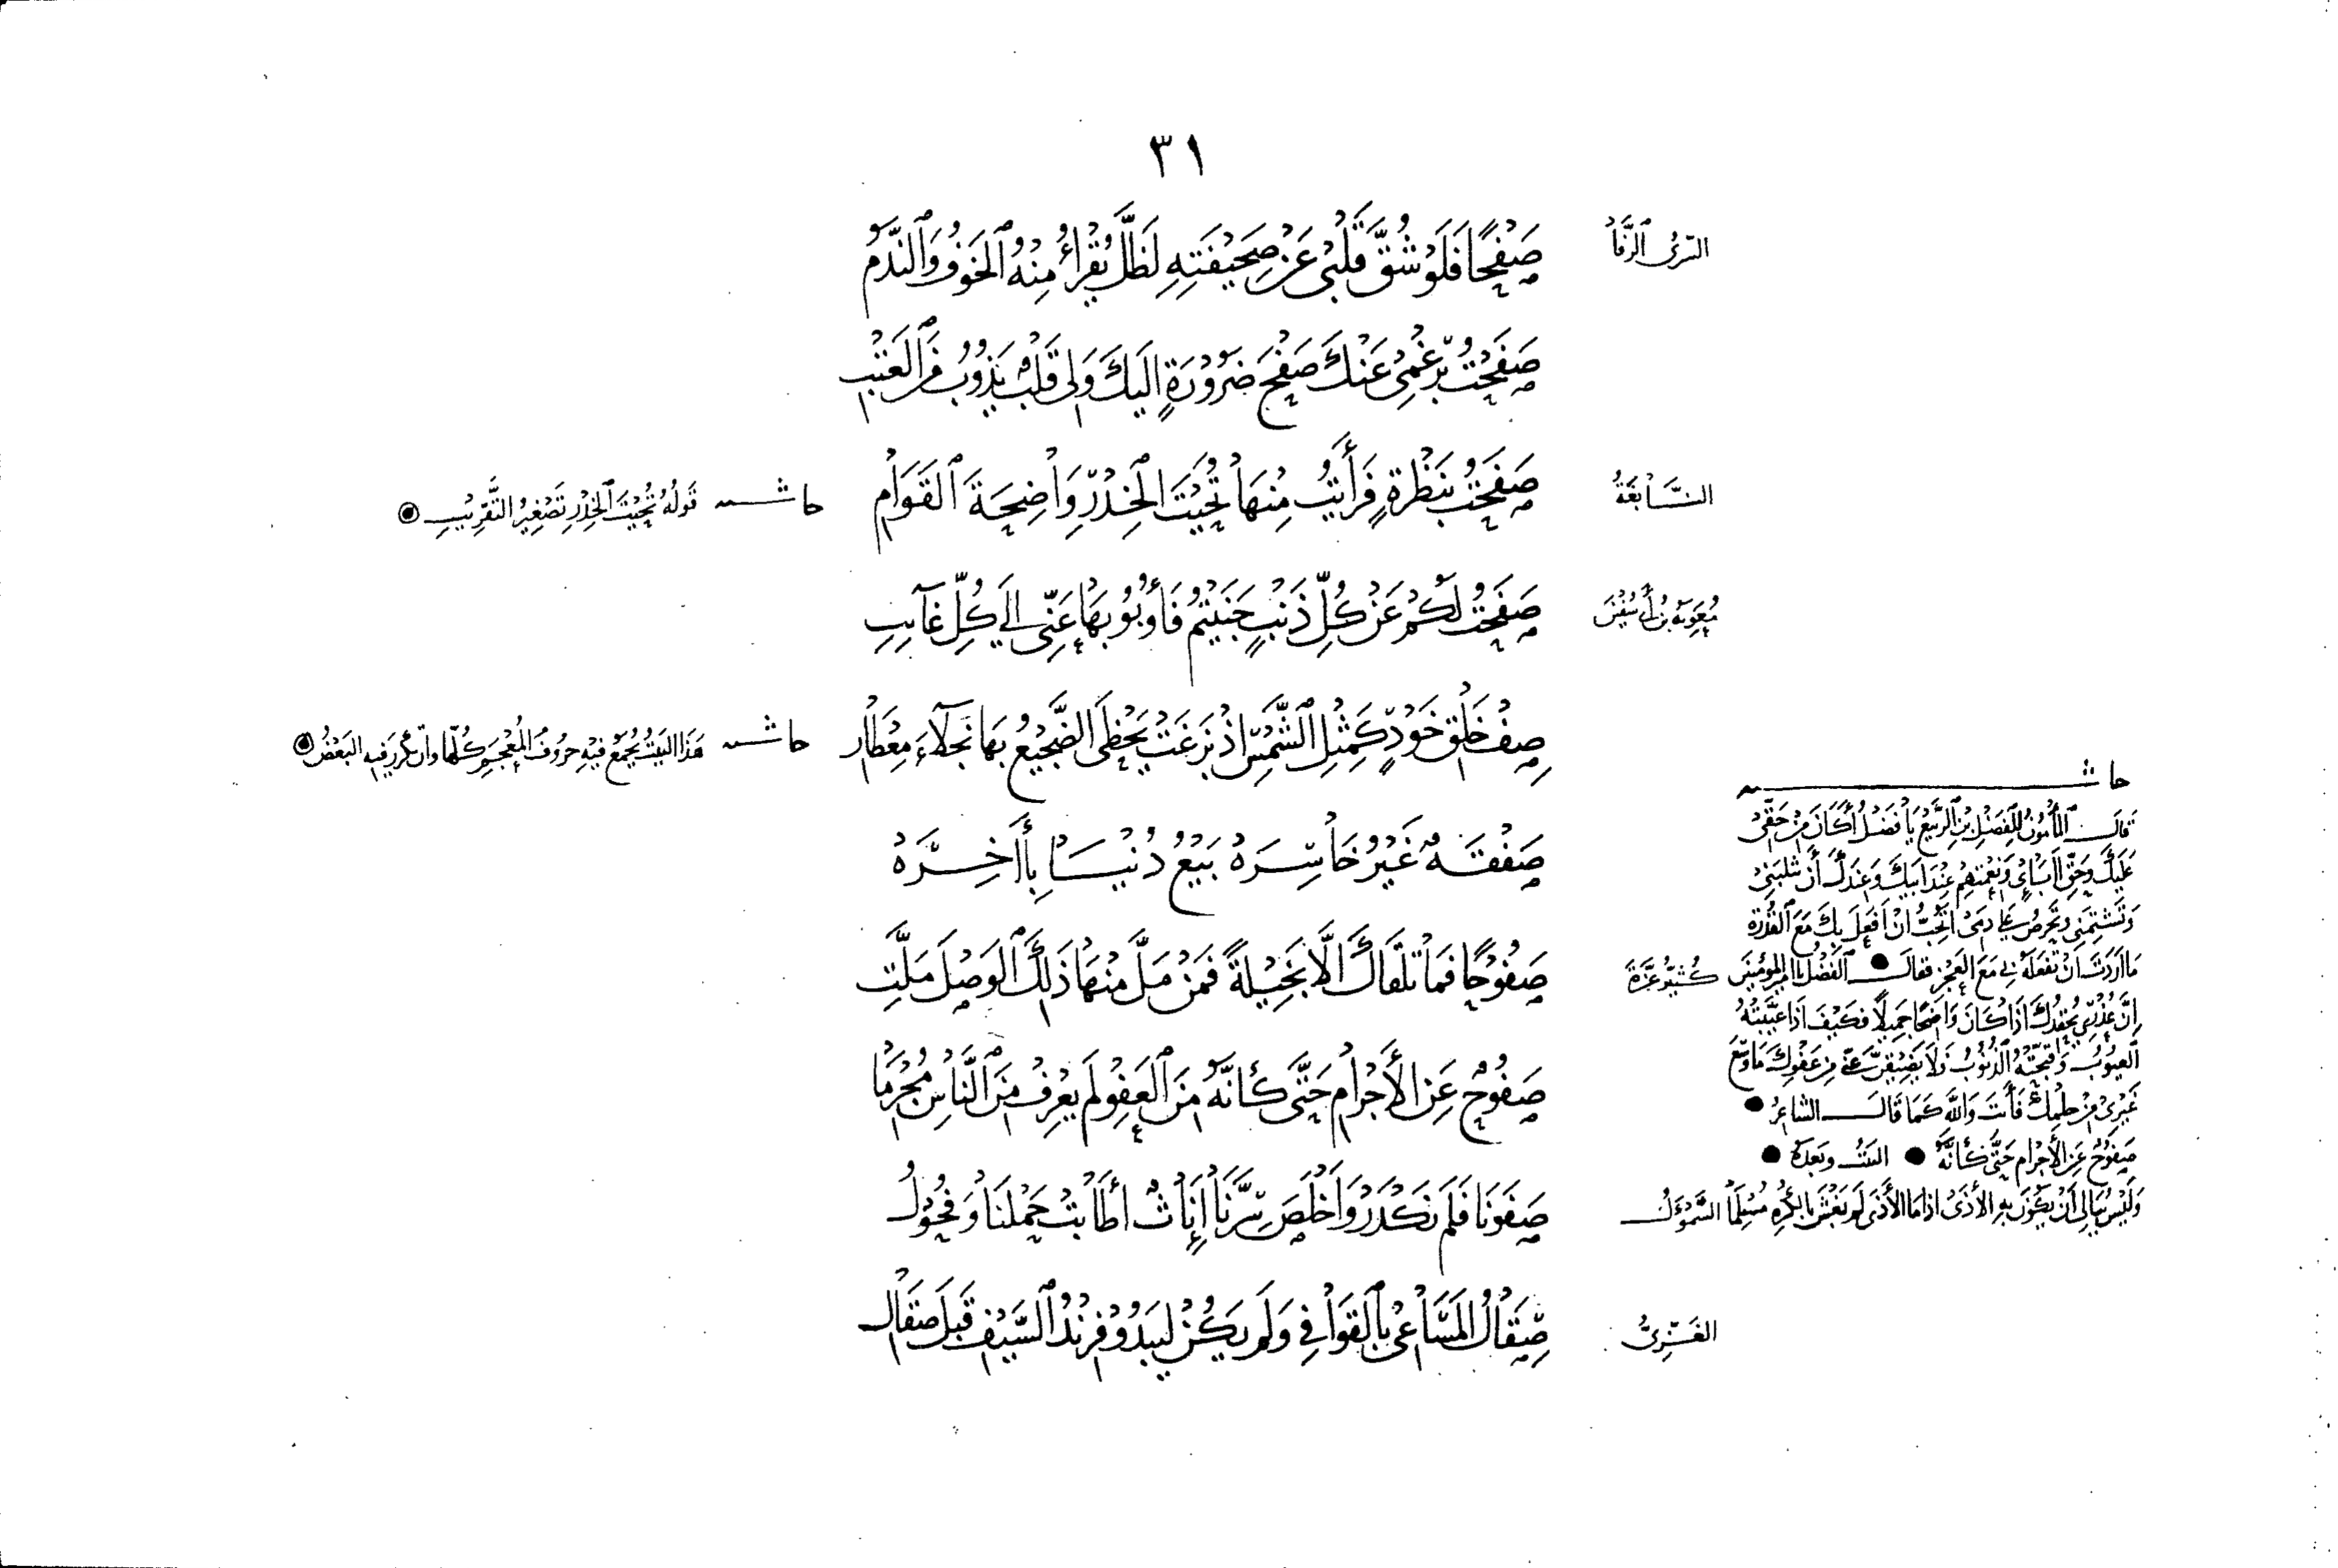 ٣١
السَّرِيُّ الرَّفَّاءُ
صَفْحًا فَلَوْ شُقَّ قَلْبِي عَنْ صَحِيْفَتِهِ لَظَلَّ يُقْرَأُ مِنْهُ الْخَوْفُ وَالنَّدَمُ
صَفَحْتُ بِرَغْمِي عَنْكَ صَفْحَ ضَرُوْرَةٍ إِلَيْكَ وَلِي قَلْبٌ يَذُوْبُ مِنَ الْعَتْبِ
النَّابِغَةُ
صَفَحْتُ بِنَظْرَةٍ فَرَأَيْتُ مِنْهَا تُحَيْتَ الْخِدْرِ وَاضِحَةَ الْقَوَامِ
حاشية قَولُهُ تُحَيْتَ الْخِدْرِ تَصْغِيْرُ التَّقْرِيْبِ
مُعَوِيَةُ بْنُ أَبِي سُفْيَنَ
صَفَحْتُ لَكُمْ عَنْ كُلِّ ذَنْبٍ جَنَيْتُمُ فَأُوْبُوْ بِهَا عَنِّي إِلَى كُلِّ غَآئِبِ
صِفْ خَلْقَ خَوْدٍ كَمِثْلِ الشَّمْسِ اذْ بَزَغَتْ يَحْظَى الضَّجِيْعُ بِهَا نَجْلَاءَ مِعْطَارِ
حاشية هَذَا البَيْتُ يُجْمَعُ فِيْهِ حُرُوفُ الْمُعْجَمِ كُلُّهَا وَانْ تكرر فيه البَعْضُ
صَفْقَةٌ غَيْرُ خَاسِرَهْ بَيْعُ دُنْيَا بِأَاخِرَهْ
كُثَيِّرُ عَزَّةَ
صَفُوْحًا فَمَا تَلْقَاكَ الَّا بَخِيْلَةً فَمَنْ مَلَّ مِنْهَا ذَلِكَ الْوَصْلَ مَلَّتِ
صَفُوْحٌ عَنِ الأَجْرَامِ حَتَّى كَأَنَّهُ مِنَ الْعَفْوِ لَمْ يَعْرِفْ مِنَ النَّاسِ مُجْرِمَا
السَّمَوْءَلُ
صَفَوْنَا فَلَمْ نَكْدَرْ وَأَخْلَصَ سِرَّنَا إِنَاثٌ أَطَابَتْ حَمْلَنَا وَفُحُوْلُ
الغَزِّيُّ
صِقَالُ الْمَسَاعِي بِالْقَوَافِي وَلَمْ يَكُنْ لِيَبْدُوْ فِرِنْدُ السَّيْفِ قَبْلَ صِقَالِ
حاشية
قَالَ الْمَأْمُونُ لِلْفَضْلِ بْنِ الرَّبِيْعِ يَا فَضْلُ أَكَانَ مِنْ حَقِّي
عَلَيْكَ وَحَقِّ اابَائِي وَنِعْمَتِهِمْ عِنْدَ ابِيْكَ وَعِنْدَكَ أَنْ تَثْلِبَنِي
وَتَشْتِمَنِي وَتُحَرِّضَ عَلَى دَمِي اتُحِبُّ انْ افْعَلَ بِكَ مَعَ الْقُدْرَة
مَا أَرَدْتَ انْ تَفْعَلَهُ بِي مَعَ الْعَجْزِ فَقَالَ الْفَضْلُ يا امير الْمُؤْمِنِينَ
إِنَّ عُذْرِي يُحْقِدُكَ اذَا كَانَ وَاضِحًا جَمِيلًا فَكَيْفَ اذَا عَيَّبَتْهُ
الْعُيُوْبُ وَقَبَّحَتْهُ الذُّنُوْبُ فَلَا يَضِيْقُ عَنِّي مِنْ عَفْوِكَ مَا وَسِعَ
غَيْرِي مِنْ حِلْمِكَ فَأَنْتَ وَاللّهِ كَمَا قَالَ الشَّاعِرُ
صَفُوْحٌ عَنِ الأَجْرَامِ حَتَّى كَأَنَّهُ البَيْتُ وبَعْدَهُ
وَلَيْسَ يُبَالِي أَنْ يَكُوْنَ بِهِ الأَذَى اذَا مَا الأَذَى لَمْ يَغْشَ بِالْكُرْهِ مُسْلِمَا